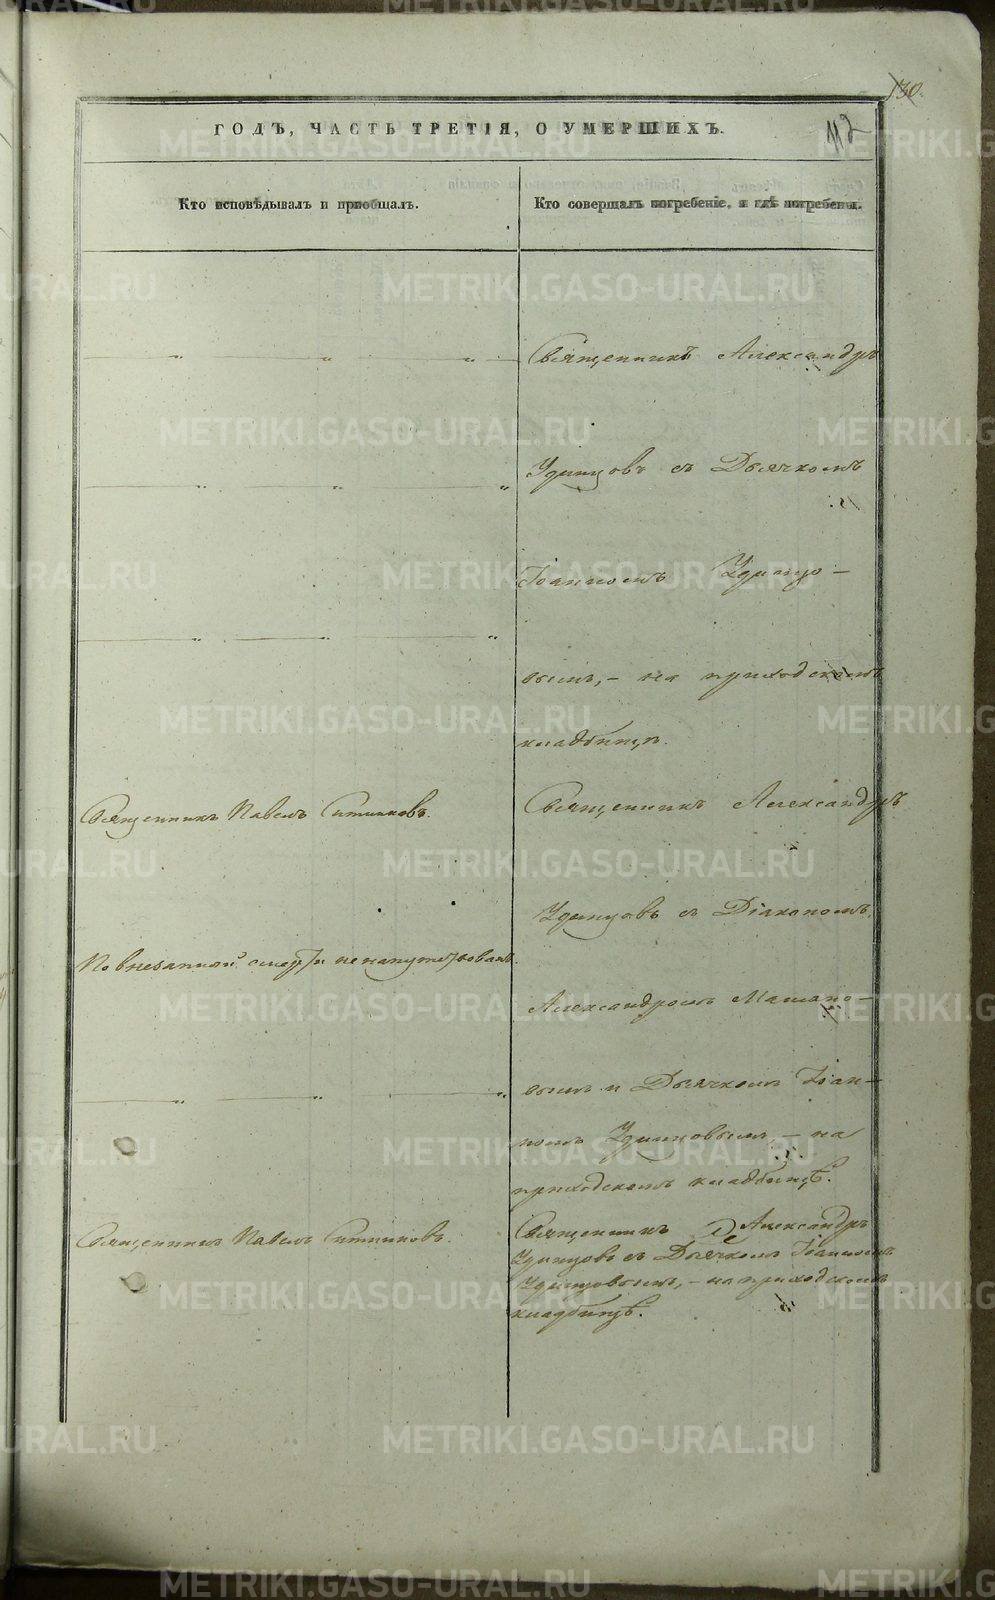 130.
112
ГОДЪ, ЧАСТЬ ТРЕТІЯ, О УМЕРШИХЪ.
Кто исповѣдывалъ и приобщалъ.
Кто совершалъ погребеніе, и гдѣ погребены.
Священникъ Александръ
Удинцовъ съ Дьячкомъ
Іоанномъ Удинцо-
вымъ, - на приходскомъ
кладбищѣ.
Священникъ Павелъ Ситниковъ.
Священникъ Александръ
Удинцовъ съ Діакономъ
По внезапной смерти не напутствованъ.
Александромъ
вымъ и Дьячкомъ Іоан-
номъ Удинцовымъ, - на
приходскомъ кладбищѣ.
Священникъ Павелъ Ситниковъ.
Священникъ Александръ
Удинцовъ съ Дьячкомъ Іоанномъ
Удинцовымъ, - на приходскомъ
кладбищѣ.
METRIKI.GASO-URAL.RU